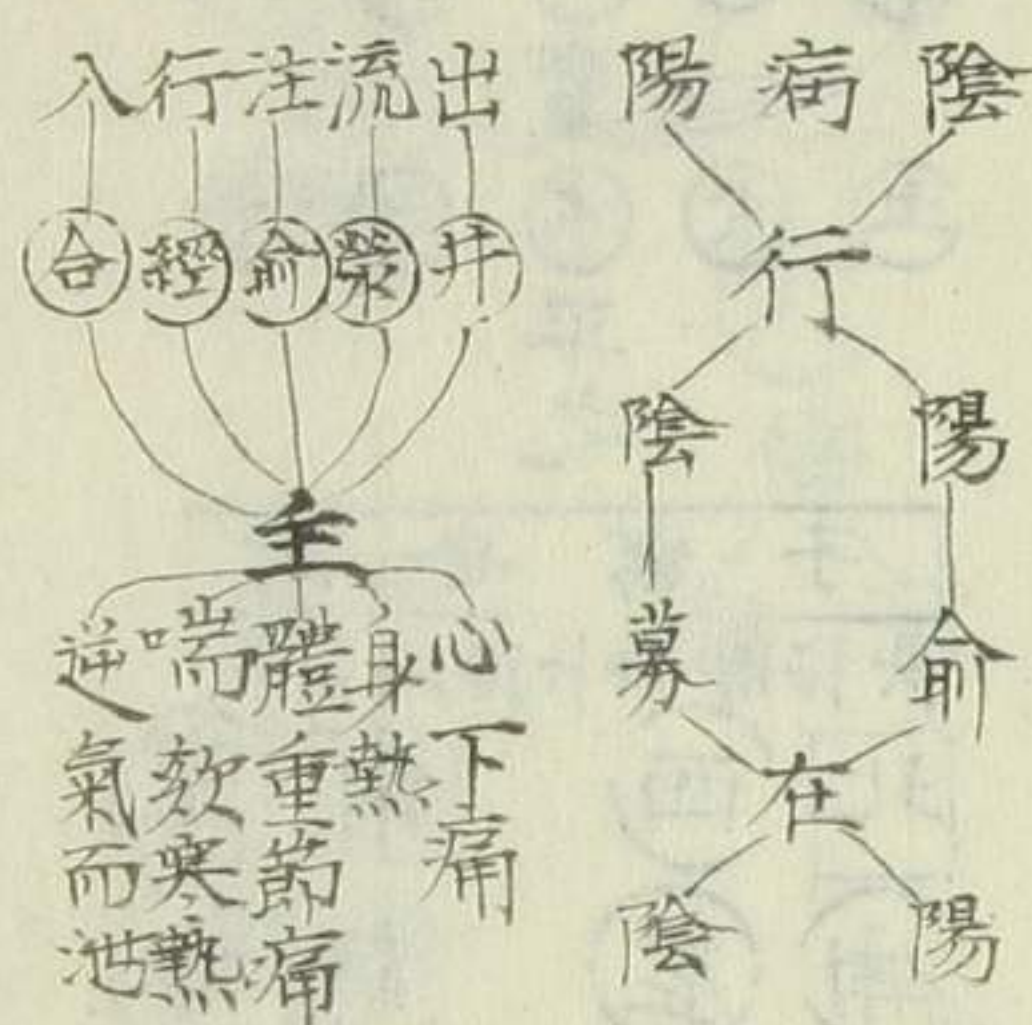 陰病陽
行
陽陰
俞募
在
陽陰
出流注行入
井滎俞經合
主
心下痛
身熱
體重節痛
喘欬寒熱
逆氣而泄